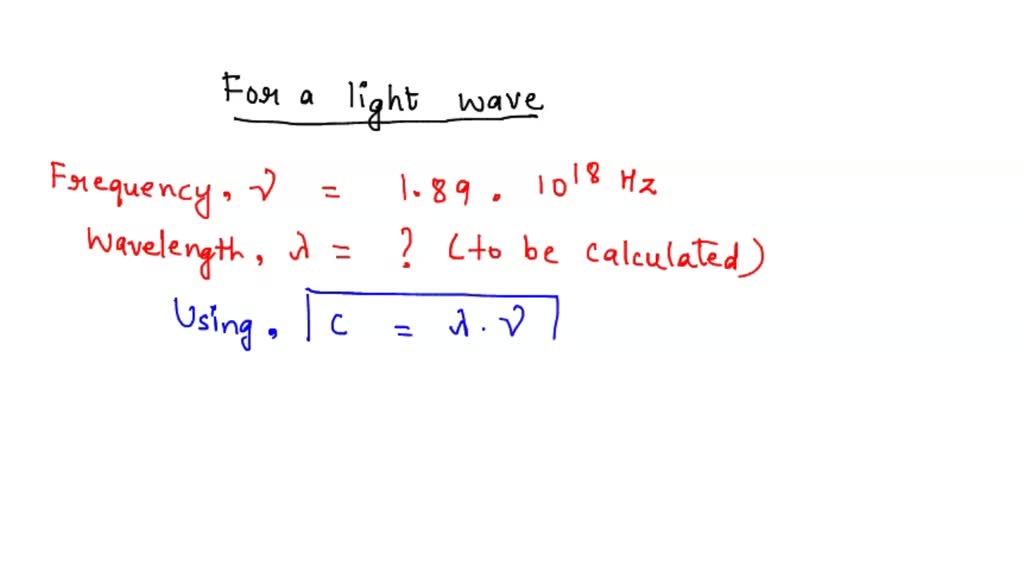 For a light wave
Frequency, ν = 1.89 . 10¹⁸ Hz
Wavelength, λ = ? (to be calculated)
Using, C = λ . ν